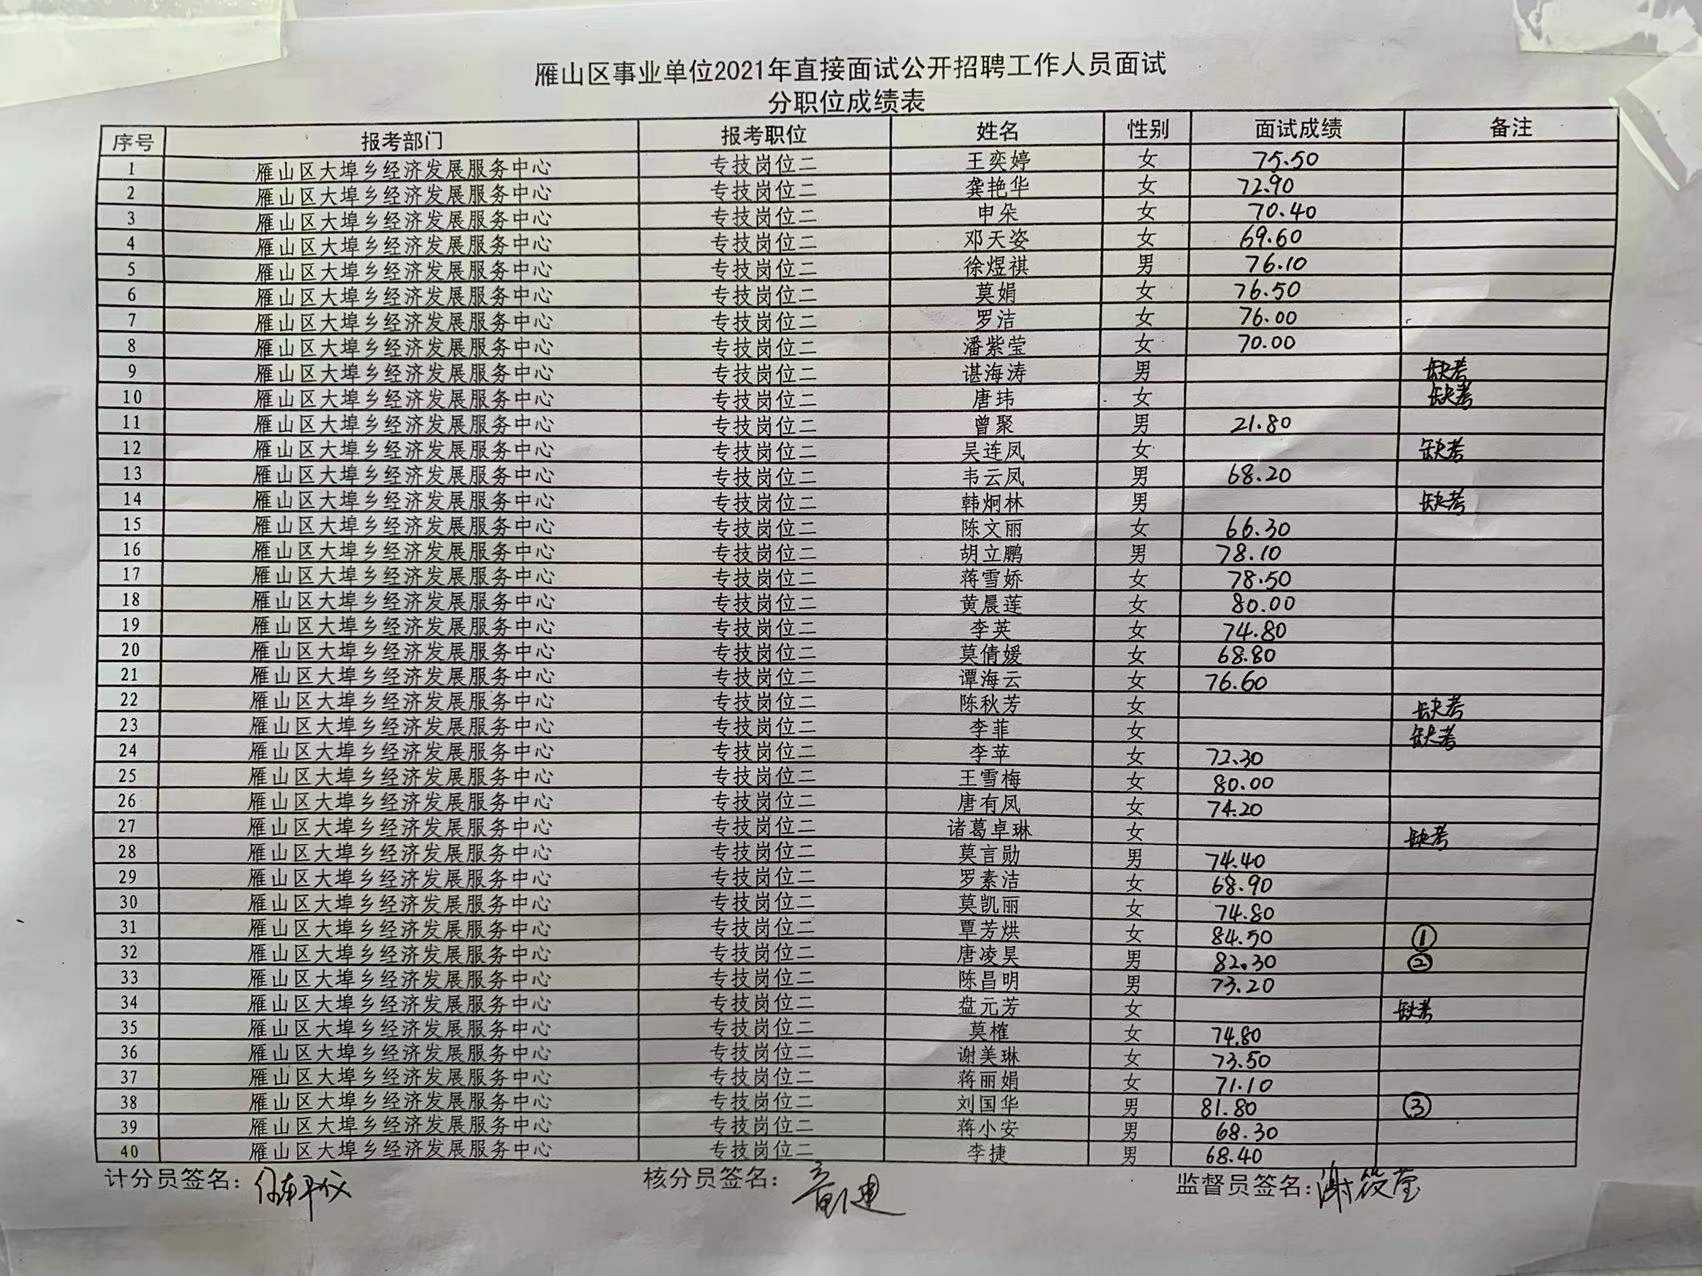 雁山区事业单位2021年直接面试公开招聘工作人员面试
分职位成绩表
序号 报考部门 报考职位 姓名 性别 面试成绩 备注
1 雁山区大埠乡经济发展服务中心 专技岗位二 王奕婷 女 75.50
2 雁山区大埠乡经济发展服务中心 专技岗位二 龚艳华 女 72.90
3 雁山区大埠乡经济发展服务中心 专技岗位二 申朵 女 70.40
4 雁山区大埠乡经济发展服务中心 专技岗位二 邓天姿 女 69.60
5 雁山区大埠乡经济发展服务中心 专技岗位二 徐煜祺 男 76.10
6 雁山区大埠乡经济发展服务中心 专技岗位二 莫娟 女 76.50
7 雁山区大埠乡经济发展服务中心 专技岗位二 罗洁 女 76.00
8 雁山区大埠乡经济发展服务中心 专技岗位二 潘紫莹 女 70.00
9 雁山区大埠乡经济发展服务中心 专技岗位二 谌海涛 男 缺考
10 雁山区大埠乡经济发展服务中心 专技岗位二 唐玮 女 缺考
11 雁山区大埠乡经济发展服务中心 专技岗位二 曾聚 男 21.80
12 雁山区大埠乡经济发展服务中心 专技岗位二 吴连凤 女 缺考
13 雁山区大埠乡经济发展服务中心 专技岗位二 韦云凤 男 68.20
14 雁山区大埠乡经济发展服务中心 专技岗位二 韩炯林 男 缺考
15 雁山区大埠乡经济发展服务中心 专技岗位二 陈文丽 女 66.30
16 雁山区大埠乡经济发展服务中心 专技岗位二 胡立鹏 男 78.10
17 雁山区大埠乡经济发展服务中心 专技岗位二 蒋雪娇 女 78.50
18 雁山区大埠乡经济发展服务中心 专技岗位二 黄晨莲 女 80.00
19 雁山区大埠乡经济发展服务中心 专技岗位二 李英 女 74.80
20 雁山区大埠乡经济发展服务中心 专技岗位二 莫倩媛 女 68.80
21 雁山区大埠乡经济发展服务中心 专技岗位二 谭海云 女 76.60
22 雁山区大埠乡经济发展服务中心 专技岗位二 陈秋芳 女 缺考
23 雁山区大埠乡经济发展服务中心 专技岗位二 李菲 女 缺考
24 雁山区大埠乡经济发展服务中心 专技岗位二 李苹 女 72.30
25 雁山区大埠乡经济发展服务中心 专技岗位二 王雪梅 女 80.00
26 雁山区大埠乡经济发展服务中心 专技岗位二 唐有凤 女 74.20
27 雁山区大埠乡经济发展服务中心 专技岗位二 诸葛卓琳 女 缺考
28 雁山区大埠乡经济发展服务中心 专技岗位二 莫言勋 男 74.40
29 雁山区大埠乡经济发展服务中心 专技岗位二 罗素洁 女 68.90
30 雁山区大埠乡经济发展服务中心 专技岗位二 莫凯丽 女 74.80
31 雁山区大埠乡经济发展服务中心 专技岗位二 覃芳烘 女 84.50 ①
32 雁山区大埠乡经济发展服务中心 专技岗位二 唐凌昊 男 82.30 ②
33 雁山区大埠乡经济发展服务中心 专技岗位二 陈昌明 男 73.20
34 雁山区大埠乡经济发展服务中心 专技岗位二 盘元芳 女 缺考
35 雁山区大埠乡经济发展服务中心 专技岗位二 莫榷 女 74.80
36 雁山区大埠乡经济发展服务中心 专技岗位二 谢美琳 女 73.50
37 雁山区大埠乡经济发展服务中心 专技岗位二 蒋丽娟 女 71.10
38 雁山区大埠乡经济发展服务中心 专技岗位二 刘国华 男 81.80 ③
39 雁山区大埠乡经济发展服务中心 专技岗位二 蒋小安 男 68.30
40 雁山区大埠乡经济发展服务中心 专技岗位二 李捷 男 68.40
计分员签名： 核分员签名： 监督员签名：谢筱莹